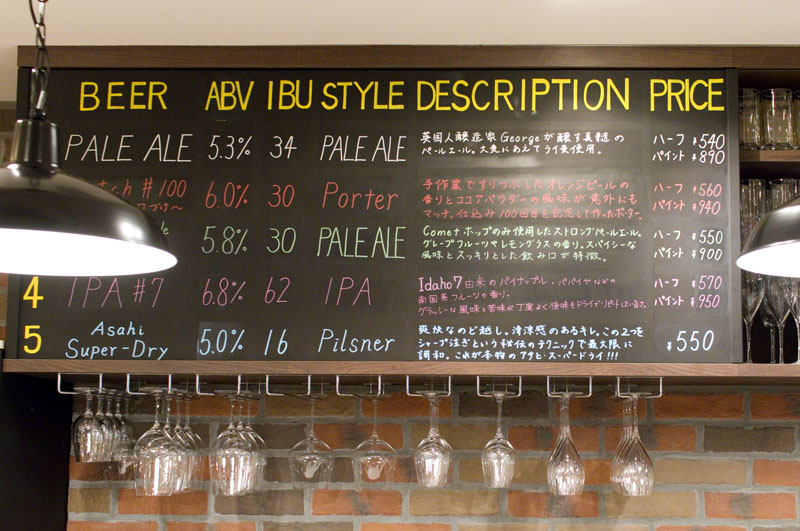 BEER ABV IBU STYLE DESCRIPTION PRICE
PALE ALE 5.3% 34 PALE ALE 英国人醸造家Georgeが醸す真髄の ハーフ ¥540
ペールエール。大麦にあえて小麦使用。 パイント ¥890
#100 6.0% 30 Porter 手作業ですりつぶしたオレンジピールの ハーフ ¥560
香りとココアパウダーの風味が意外にも パイント ¥940
マッチ。仕込み100回目を記念して作ったポーター。
5.8% 30 PALE ALE Cometホップのみ使用したストロングペールエール。 ハーフ ¥550
グレープフルーツやレモングラスの香り。スパイシーな パイント ¥900
風味とスッキリとした飲み口が特徴。
4 IPA #7 6.8% 62 IPA Idaho7由来のパイナップル・パパイヤなどの ハーフ ¥570
南国系フルーツの香り。 パイント ¥950
グラッシーな風味と苦味が丁度よく後味もドライで
5 Asahi Super-Dry 5.0% 16 Pilsner 爽快なのど越し。清涼感のあるキレ。この2つを ¥550
シャープ注ぎという秘伝のテクニックで最大限に
調和。これが本物のアサヒ・スーパードライ!!!